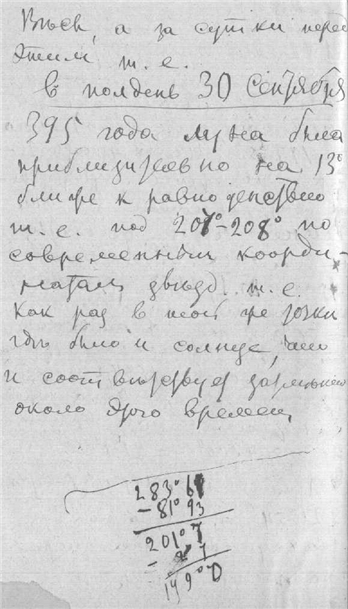 Весов, а за сутки перед
этим т. е.
в полдень 30 Сентября
395 года луна была
приблизительно на 13°
ближе к равноденствию
т. е. под 207°-208° по
современным коорди-
натам звезд т. е.
как раз в той же точке
где было и солнце, что
и соответствует затмению
около этого времени
283°6
- 81°93
201°7
149°0